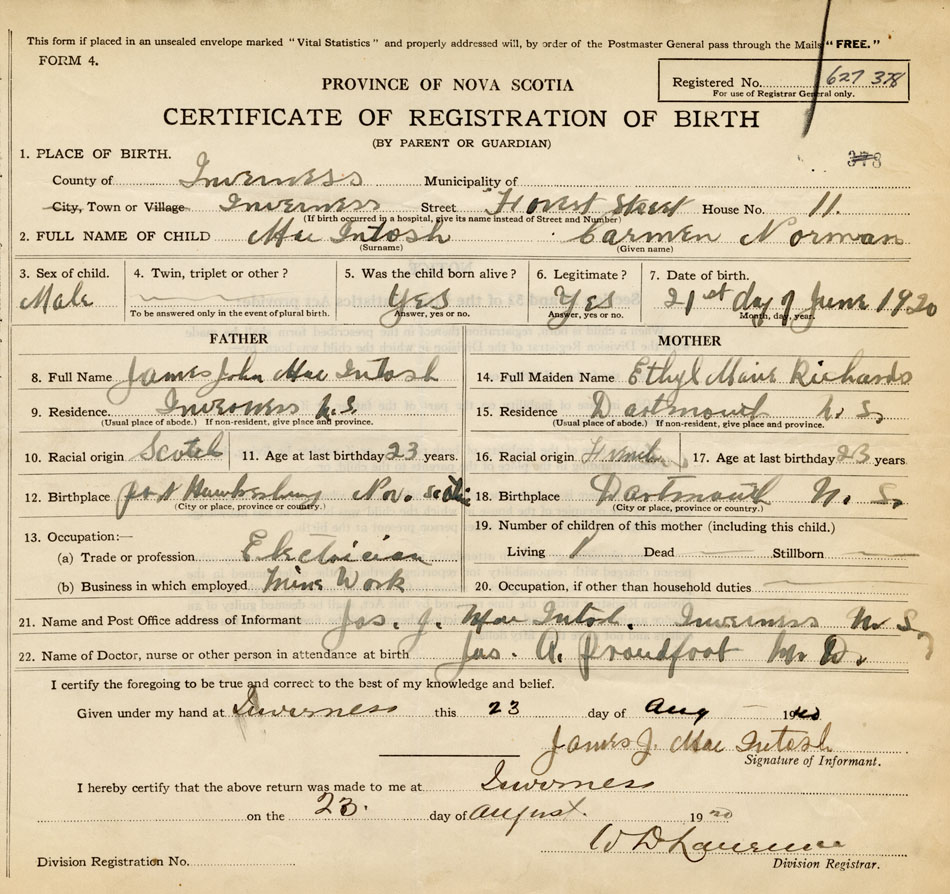 This form if placed in an unsealed envelope marked "Vital Statistics" and properly addressed will, by order of the Postmaster General pass through the Mails "FREE."
FORM 4.
PROVINCE OF NOVA SCOTIA
Registered No. 627 378
For use of Registrar General only.
CERTIFICATE OF REGISTRATION OF BIRTH
(BY PARENT OR GUARDIAN)
373
1. PLACE OF BIRTH.
County of Inverness Municipality of
City, Town or Village Inverness Street Forest Street House No. 11.
(If birth occurred in a hospital, give its name instead of Street and Number)
2. FULL NAME OF CHILD Mac Intosh Carmen Norman
(Surname) (Given name)
3. Sex of child. 4. Twin, triplet or other? 5. Was the child born alive? 6. Legitimate? 7. Date of birth.
Male Yes Yes 21st day of June 1920
To be answered only in the event of plural birth. Answer, yes or no. Answer, yes or no. Month, day, year.
FATHER MOTHER
8. Full Name James John Mac Intosh 14. Full Maiden Name Ethyl Marie Richards
9. Residence. Inverness N.S. 15. Residence Dartmouth N. S.
(Usual place of abode.) If non-resident, give place and province. (Usual place of abode.) If non-resident, give place and province.
10. Racial origin Scotch 11. Age at last birthday 23 years. 16. Racial origin 17. Age at last birthday 23 years
12. Birthplace port Hawkesbury Nov. Scotia 18. Birthplace Dartmouth N. S.
(City or place, province or country.) (City or place, province or country.)
13. Occupation:— 19. Number of children of this mother (including this child.)
(a) Trade or profession Electrician Living 1 Dead Stillborn
(b) Business in which employed Mine Work 20. Occupation, if other than household duties
21. Name and Post Office address of Informant Jas. J. Mac Intosh. Inverness N. S.
22. Name of Doctor, nurse or other person in attendance at birth Jas. A. Proudfoot M. D.
I certify the foregoing to be true and correct to the best of my knowledge and belief.
Given under my hand at Inverness this 23 day of Aug 1920
James J. Mac Intosh
Signature of Informant.
I hereby certify that the above return was made to me at Inverness
on the 23. day of August. 1920
W D Lawrence
Division Registration No. Division Registrar.